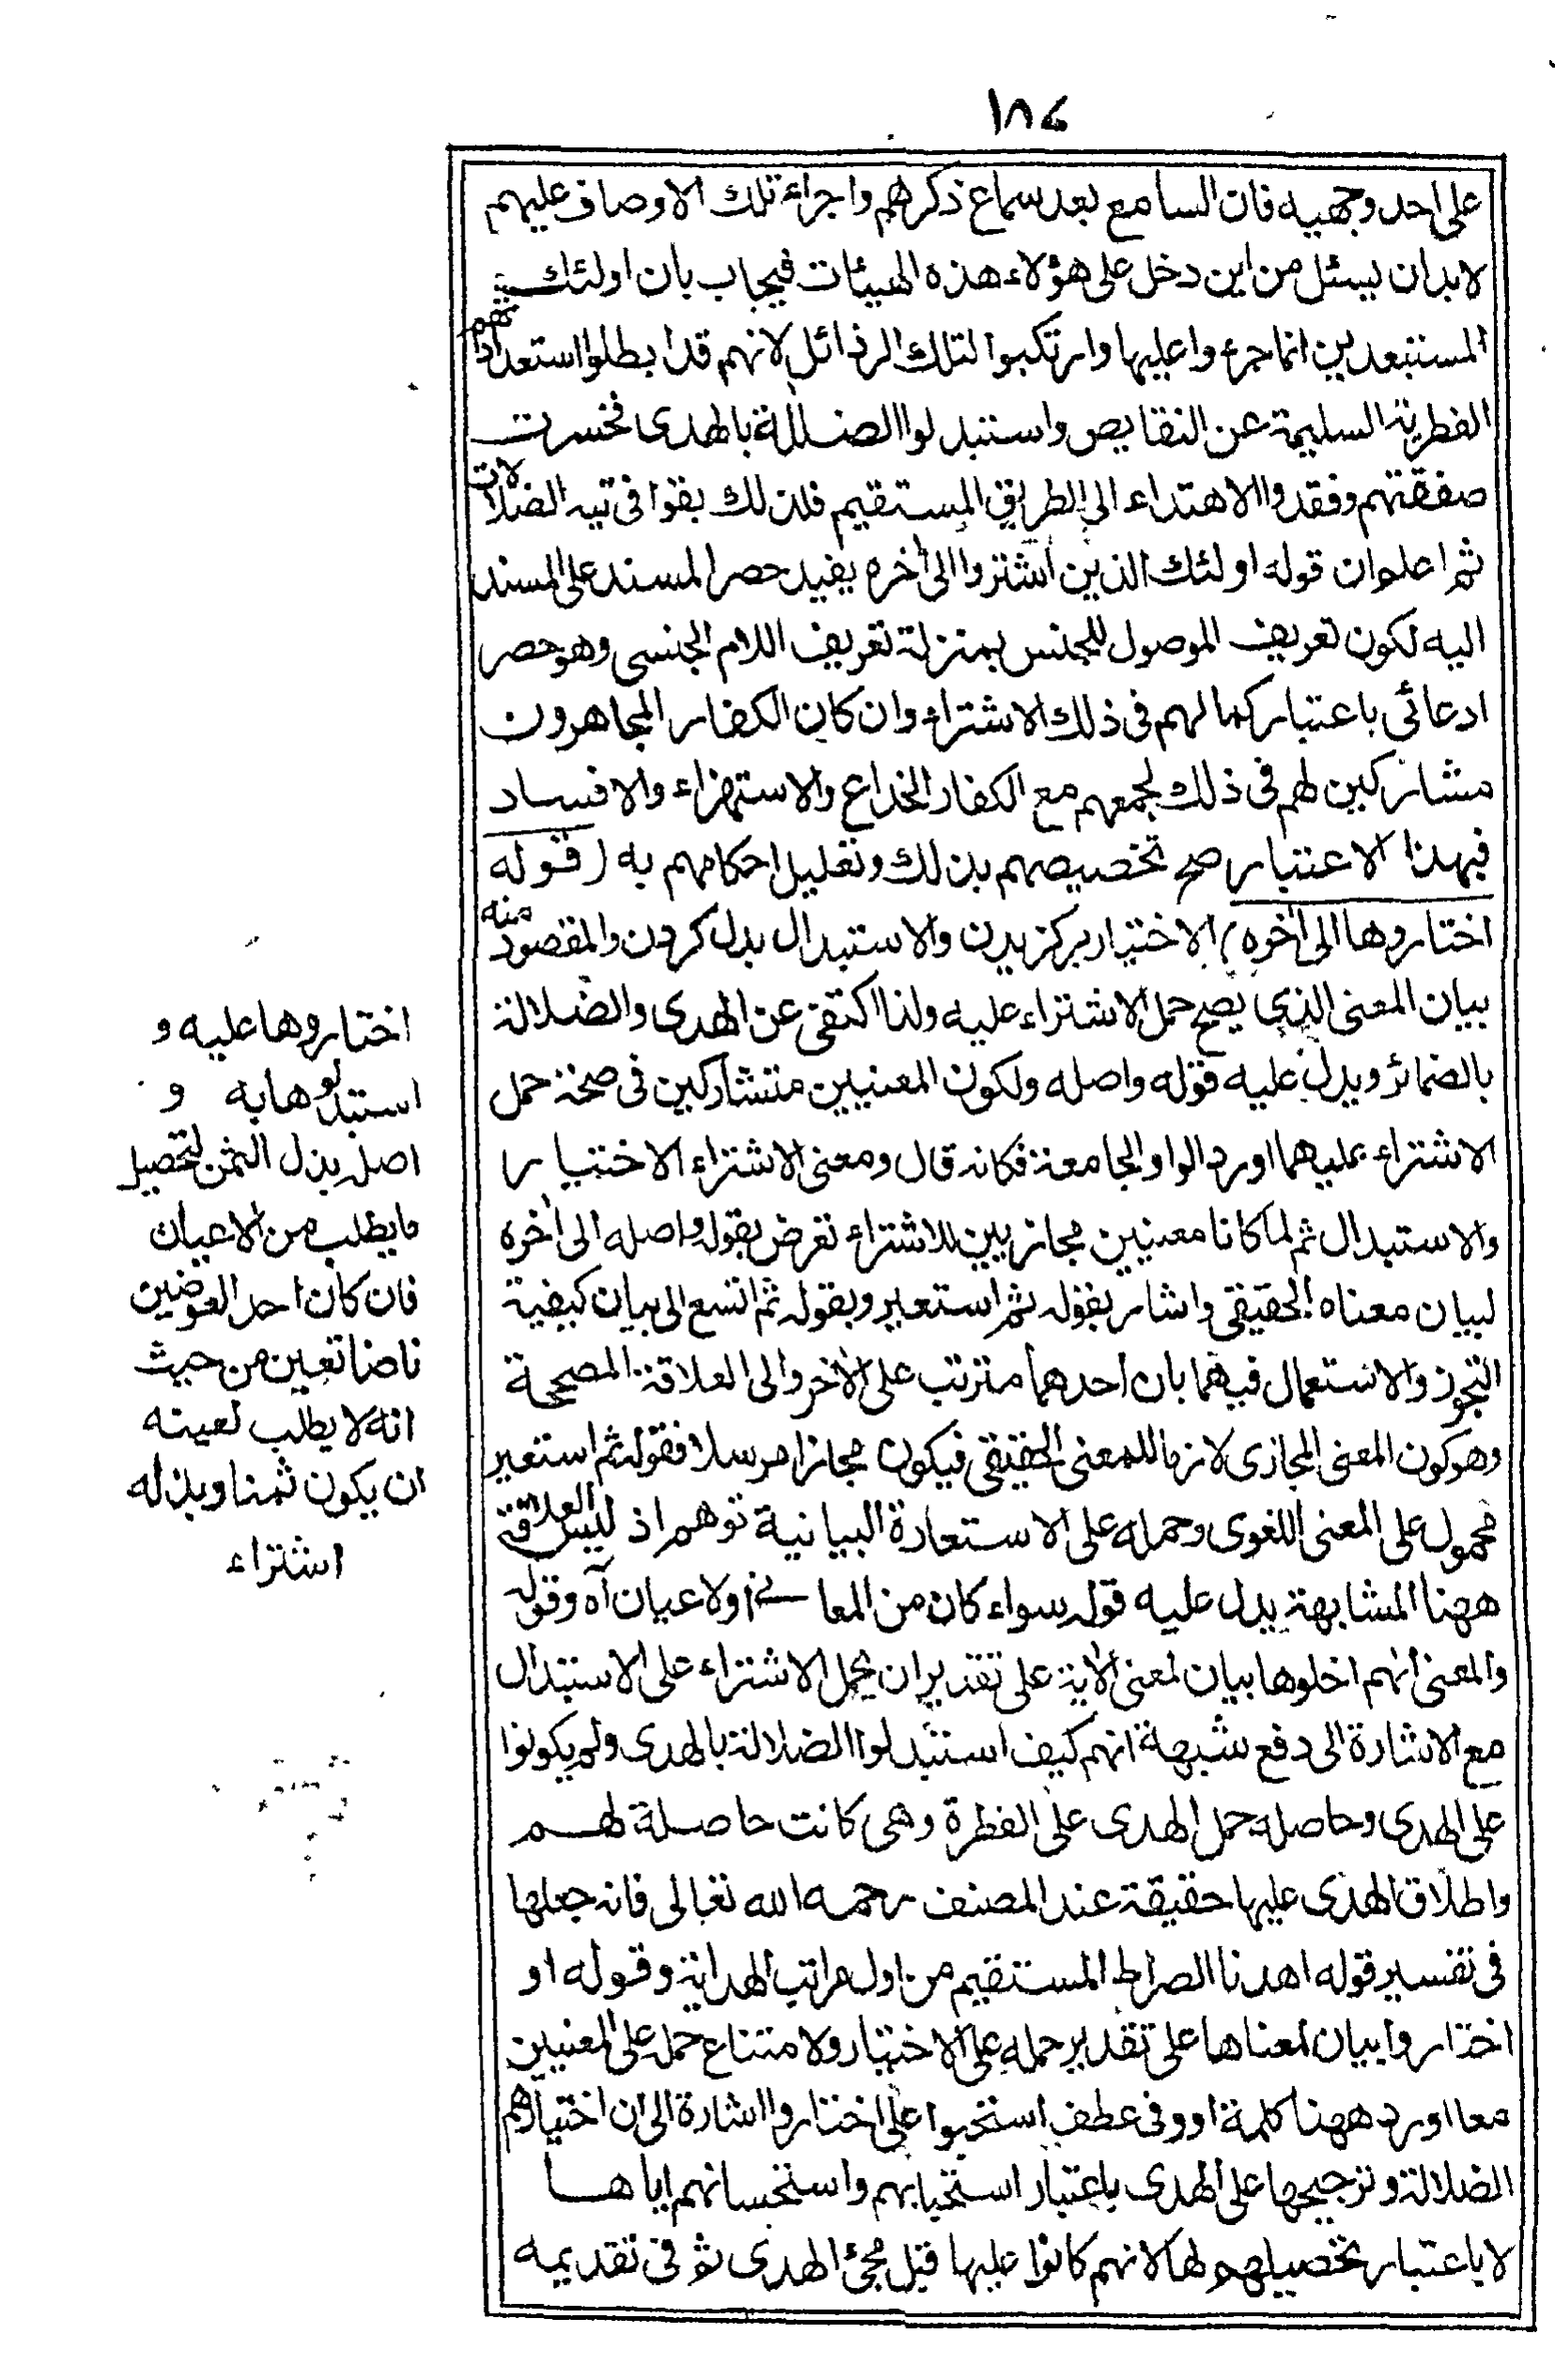 ١٨٤
على احد وجهيه فان السامع بعد سماع ذكرهم واجراء تلك الاوصاف عليهم
لابدان يسئل من اين دخل على هؤلاء هذه الهيئات فيجاب بان اولئك
المستبعدين انما جرءوا عليها وارتكبوا لتلك الرذائل لانهم قد ابطلوا استعداداتهم
الفطرية السليمة عن النقايص واستبدلوا الضلالة بالهدى فخسرت
صفقتهم وفقدوا الاهتداء الى الطريق المستقيم فلذلك بقوا فى تيه الضلالات
ثم اعلم ان قوله اولئك الذين اشتروا الى أخره يفيد حصر المسند على المسند
اليه لكون تعريف الموصول للجنس بمنزلة تعريف اللام الجنسى وهو حصر
ادعائى باعتبار كمالهم فى ذلك الاشتراء وان كان الكفار المجاهرون
مشاركين لهم فى ذلك لجمعهم مع الكفار الخداع والاستهزاء والافساد
فبهذا الاعتبار صح تخصيصهم بذلك وتعليل احكامهم به (قوله
اختاروها الى أخره) الاختيار بركزيدن والاستبدال بدل كردن والمقصود منه
بيان المعنى الذى يصح حمل الاشتراء عليه ولذا اكتفى عن الهدى والضلالة
بالضمائر ويدل عليه قوله واصله ولكون المعنيين متشاركين فى صحة حمل
الاشتراء عليهما اورد الواو الجامعة فكانه قال ومعنى الاشتراء الاختيار
والاستبدال ثم لما كانا معنيين مجازيين للاشتراء تعرض بقوله واصله الى أخره
لبيان معناه الحقيقى واشار بقوله ثم استعير وبقوله ثم اتسع الى بيان كيفية
التجوز والاستعمال فيهما بان احدهما مترتب على الاخر والى العلاقة المصححة
وهو كون المعنى المجازى لازما للمعنى الحقيقى فيكون مجازا مرسلا فقوله ثم استعير
محمول على المعنى اللغوى وحمله على الاستعارة البيانية توهم اذ ليس العلاقة
ههنا المشابهة يدل عليه قوله سواء كان من المعانى اولاعيان آه وقوله
والمعنى انهم اخلوها بيان لمعنى الاية على تقدير ان يحمل الاشتراء على الاستبدال
مع الاشارة الى دفع شبهة انهم كيف استبدلوا الضلالة بالهدى ولم يكونوا
على الهدى وحاصله حمل الهدى على الفطرة وهى كانت حاصلة لهم
واطلاق الهدى عليها حقيقة عند المصنف رحمه الله تعالى فانه جعلها
فى تفسير قوله اهدنا الصراط المستقيم من اول مراتب الهداية وقوله او
اختاروا بيان لمعناها على تقدير حمله على الاختيار ولامتناع حمل على المعنيين
معا اورد ههنا كلمة او وفى عطف استحبوا على اختاروا اشارة الى ان اختيارهم
الضلالة وترجيحها على الهدى باعتبار استحبابهم واستحسانهم اياها
لا باعتبار تحصيلهم لها لانهم كانوا عليها قبل مجئ الهدى ثم فى تقديمه
اختاروها عليه و
استبدلوها به و
اصله بذل الثمن لتحصيل
ما يطلب من الاعيان
فان كان احد العوضين
ناضا تعين من حيث
انه لا يطلب لعينه
ان يكون ثمنا وبذله
اشتراء